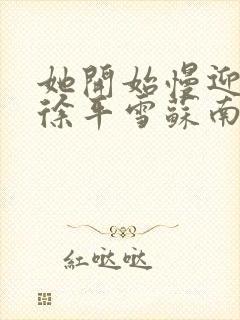 她開始慢迎
徐平雪蘇南
紅哒哒